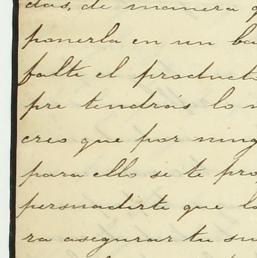 das, de manera q
ponerla en un ba
falte el product
pre tendrais lo n
creo que por ning
para ello se te pro
persuadirte que la
ra asegurar tu su